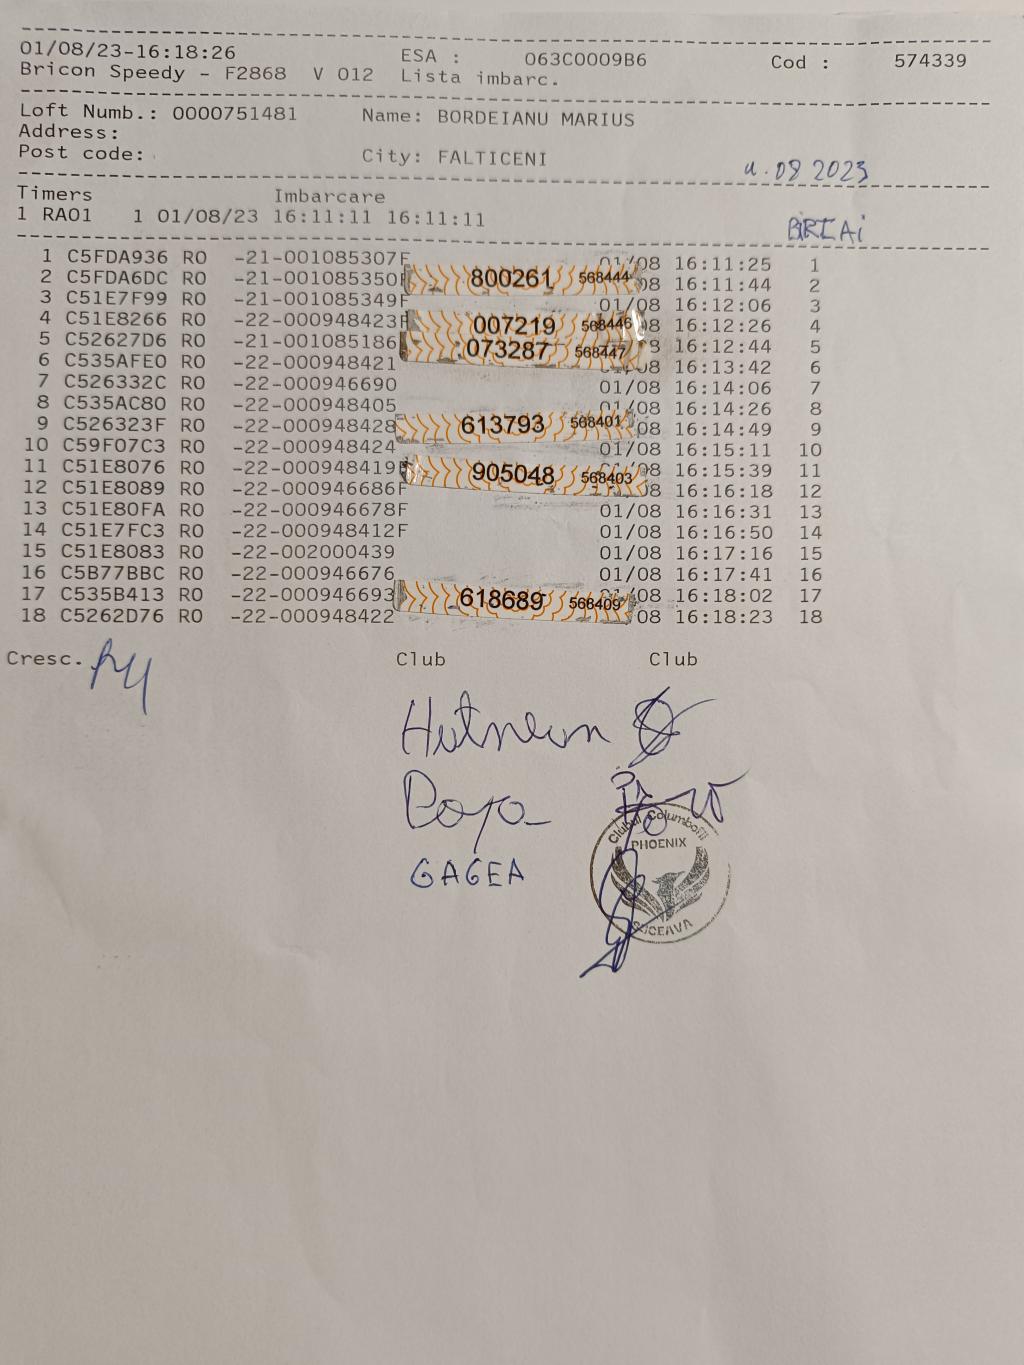 01/08/23-16:18:26 ESA : 063C0009B6 Cod : 574339
Bricon Speedy - F2868 V 012 Lista imbarc.
Loft Numb.: 0000751481 Name: BORDEIANU MARIUS
Address:
Post code: City: FALTICENI
08 2023
Timers Imbarcare
1 RA01 1 01/08/23 16:11:11 16:11:11
1 C5FDA936 RO -21-001085307F 01/08 16:11:25 1
2 C5FDA6DC RO -21-001085350F 800261 568444 08 16:11:44 2
3 C51E7F99 RO -21-001085349F 01/08 16:12:06 3
4 C51E8266 RO -22-000948423F 007219 568446 08 16:12:26 4
5 C52627D6 RO -21-001085186 073287 568447 8 16:12:44 5
6 C535AFE0 RO -22-000948421 01/08 16:13:42 6
7 C526332C RO -22-000946690 01/08 16:14:06 7
8 C535AC80 RO -22-000948405 01/08 16:14:26 8
9 C526323F RO -22-000948428 613793 568401 08 16:14:49 9
10 C59F07C3 RO -22-000948424 01/08 16:15:11 10
11 C51E8076 RO -22-000948419F 905048 568403 08 16:15:39 11
12 C51E8089 RO -22-000946686F 08 16:16:18 12
13 C51E80FA RO -22-000946678F 01/08 16:16:31 13
14 C51E7FC3 RO -22-000948412F 01/08 16:16:50 14
15 C51E8083 RO -22-002000439 01/08 16:17:16 15
16 C5B77BBC RO -22-000946676 01/08 16:17:41 16
17 C535B413 RO -22-000946693 618689 568409 08 16:18:02 17
18 C5262D76 RO -22-000948422 08 16:18:23 18
Cresc. Club Club
GAGEA
Clubul Columbofil
PHOENIX
SUCEAVA